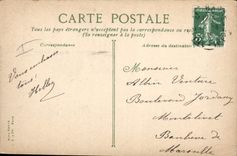 CARTE POSTALE
Tous les pays étrangers n'acceptent pas la correspondance au recto
(Se renseigner à la poste)
Correspondance
Adresse du destinataire
Vous embrasse
tous!
Monsieur
Albin
Boulevard Jourdan
Montolivet
Banlieue de
Marseille